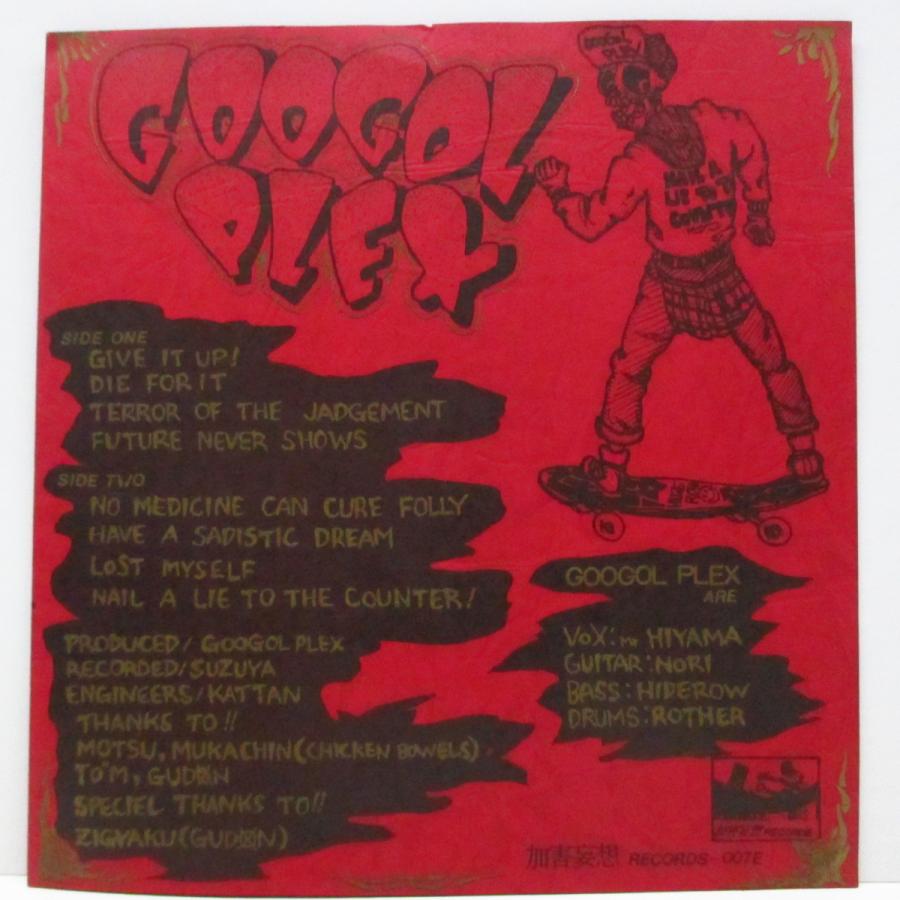 GOOGOL
PLEX
GOOGOL
PLEX
NAIL A
LIE TO T
COUNTER
SIDE ONE
GIVE IT UP!
DIE FOR IT
TERROR OF THE JADGEMENT
FUTURE NEVER SHOWS
SIDE TWO
NO MEDICINE CAN CURE FOLLY
HAVE A SADISTIC DREAM
LOST MYSELF
NAIL A LIE TO THE COUNTER!
PRODUCED/GOOGOL PLEX
RECORDED/SUZUYA
ENGINEERS/KATTAN
THANKS TO!!
MOTSU, MUKACHIN(CHICKEN BOWELS)
TO"M, GUDØN
SPECIEL THANKS TO!!
ZIGYAKU(GUDØN)
GOOGOL PLEX
ARE
VOX:Mr HIYAMA
GUITAR:NORI
BASS:HIDEROW
DRUMS:ROTHER
加害妄想 RECORDS 007E